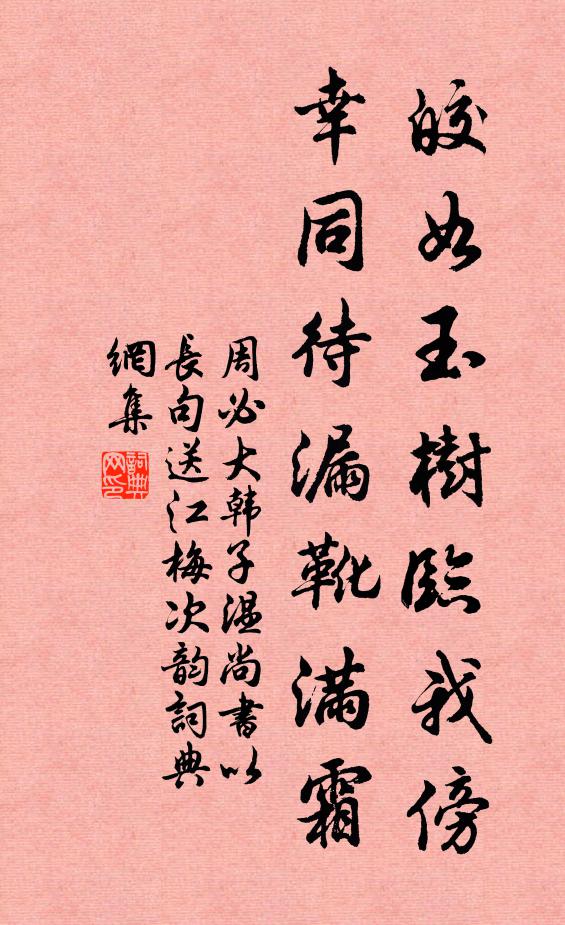 皎如玉樹臨我傍
幸同待漏靴滿霜
周必大韩子溫尚書以
長句送江梅次韵詞典
網集
詞典网印